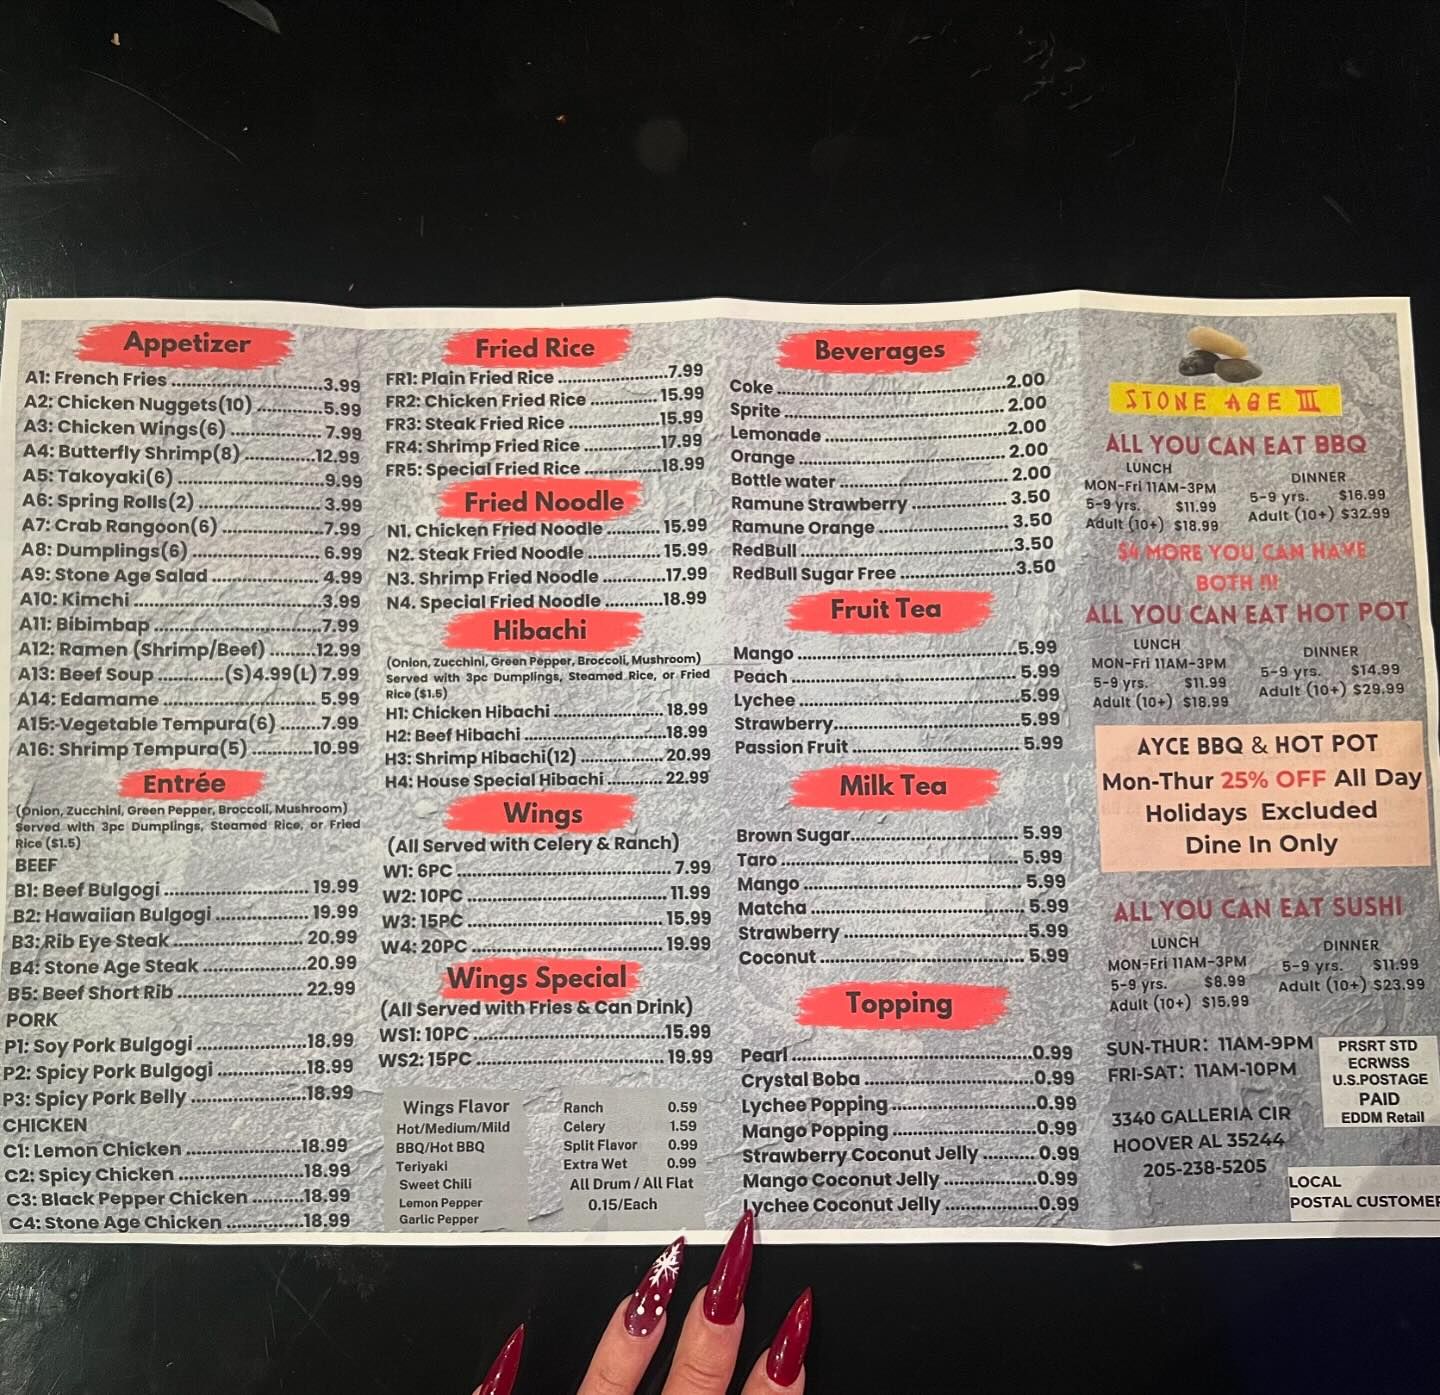 Appetizer
A1: French Fries 3.99
A2: Chicken Nuggets(10) 5.99
A3: Chicken Wings(6) 7.99
A4: Butterfly Shrimp(8) 12.99
A5: Takoyaki(6) 9.99
A6: Spring Rolls(2) 3.99
A7: Crab Rangoon(6) 7.99
A8: Dumplings(6) 6.99
A9: Stone Age Salad 4.99
A10: Kimchi 3.99
A11: Bibimbap 7.99
A12: Ramen (Shrimp/Beef) 12.99
A13: Beef Soup (S)4.99(L) 7.99
A14: Edamame 5.99
A15:-Vegetable Tempura(6) 7.99
A16: Shrimp Tempura(5) 10.99
Entrée
(Onion, Zucchini, Green Pepper, Broccoli, Mushroom)
Served with 3pc Dumplings, Steamed Rice, or Fried
Rice ($1.5)
BEEF
B1: Beef Bulgogi 19.99
B2: Hawaiian Bulgogi 19.99
B3: Rib Eye Steak 20.99
B4: Stone Age Steak 20.99
B5: Beef Short Rib 22.99
PORK
P1: Soy Pork Bulgogi 18.99
P2: Spicy Pork Bulgogi 18.99
P3: Spicy Pork Belly 18.99
CHICKEN
C1: Lemon Chicken 18.99
C2: Spicy Chicken 18.99
C3: Black Pepper Chicken 18.99
C4: Stone Age Chicken 18.99
Fried Rice
FR1: Plain Fried Rice 7.99
FR2: Chicken Fried Rice 15.99
FR3: Steak Fried Rice 15.99
FR4: Shrimp Fried Rice 17.99
FR5: Special Fried Rice 18.99
Fried Noodle
N1. Chicken Fried Noodle 15.99
N2. Steak Fried Noodle 15.99
N3. Shrimp Fried Noodle 17.99
N4. Special Fried Noodle 18.99
Hibachi
(Onion, Zucchini, Green Pepper, Broccoli, Mushroom)
Served with 3pc Dumplings, Steamed Rice, or Fried
Rice ($1.5)
H1: Chicken Hibachi 18.99
H2: Beef Hibachi 18.99
H3: Shrimp Hibachi(12) 20.99
H4: House Special Hibachi 22.99
Wings
(All Served with Celery & Ranch)
W1: 6PC 7.99
W2: 10PC 11.99
W3: 15PC 15.99
W4: 20PC 19.99
Wings Special
(All Served with Fries & Can Drink)
WS1: 10PC 15.99
WS2: 15PC 19.99
Wings Flavor
Hot/Medium/Mild
BBQ/Hot BBQ
Teriyaki
Sweet Chili
Lemon Pepper
Garlic Pepper
Ranch 0.59
Celery 1.59
Split Flavor 0.99
Extra Wet 0.99
All Drum / All Flat
0.15/Each
Beverages
Coke 2.00
Sprite 2.00
Lemonade 2.00
Orange 2.00
Bottle water 2.00
Ramune Strawberry 3.50
Ramune Orange 3.50
RedBull 3.50
RedBull Sugar Free 3.50
Fruit Tea
Mango 5.99
Peach 5.99
Lychee 5.99
Strawberry 5.99
Passion Fruit 5.99
Milk Tea
Brown Sugar 5.99
Taro 5.99
Mango 5.99
Matcha 5.99
Strawberry 5.99
Coconut 5.99
Topping
Pearl 0.99
Crystal Boba 0.99
Lychee Popping 0.99
Mango Popping 0.99
Strawberry Coconut Jelly 0.99
Mango Coconut Jelly 0.99
Lychee Coconut Jelly 0.99
STONE AGE III
ALL YOU CAN EAT BBQ
LUNCH
MON-Fri 11AM-3PM
5-9 yrs. $11.99
Adult (10+) $18.99
DINNER
5-9 yrs. $16.99
Adult (10+) $32.99
$4 MORE YOU CAN HAVE
BOTH !!!
ALL YOU CAN EAT HOT POT
LUNCH
MON-Fri 11AM-3PM
5-9 yrs. $11.99
Adult (10+) $18.99
DINNER
5-9 yrs. $14.99
Adult (10+) $29.99
AYCE BBQ & HOT POT
Mon-Thur 25% OFF All Day
Holidays Excluded
Dine In Only
ALL YOU CAN EAT SUSHI
LUNCH
MON-Fri 11AM-3PM
5-9 yrs. $8.99
Adult (10+) $15.99
DINNER
5-9 yrs. $11.99
Adult (10+) $23.99
SUN-THUR: 11AM-9PM
FRI-SAT: 11AM-10PM
3340 GALLERIA CIR
HOOVER AL 35244
205-238-5205
PRSRT STD
ECRWSS
U.S.POSTAGE
PAID
EDDM Retail
LOCAL
POSTAL CUSTOMER